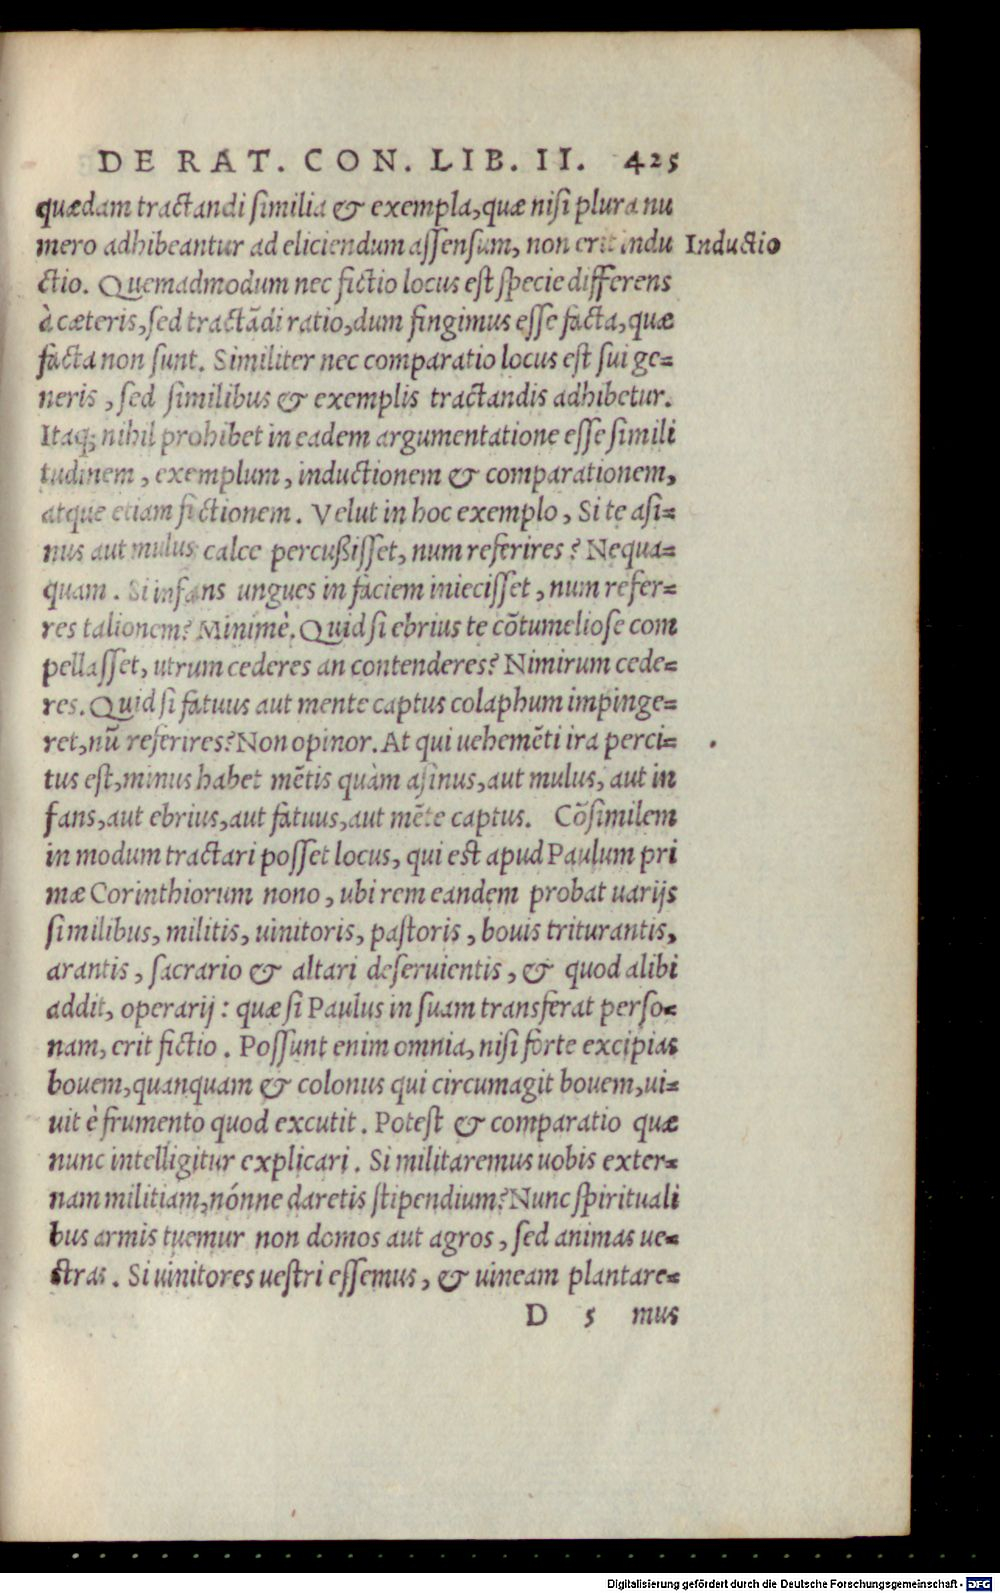 DE RAT. CON. LIB. II. 425
quædam tractandi similia & exempla, quæ nisi plura nu
mero adhibeantur ad eliciendum assensum, non erit indu
Inductio
ctio. Quemadmodum nec fictio locus est specie differens
à cæteris, sed tractãdi ratio, dum fingimus esse facta, quæ
facta non sunt. Similiter nec comparatio locus est sui ge=
neris, sed similibus & exemplis tractandis adhibetur.
Itaq; nihil prohibet in eadem argumentatione esse simili
tudinem, exemplum, inductionem & comparationem,
atque etiam fictionem. Velut in hoc exemplo, Si te asi=
nus aut mulus calce percußisset, num referires? Nequa=
quam. Si infans ungues in faciem iniecisset, num refer=
res talionem? Minimè. Quid si ebrius te cõtumeliose com
pellasset, utrum cederes an contenderes? Nimirum cede=
res. Quid si fatuus aut mente captus colaphum impinge=
ret, nũ referires? Non opinor. At qui uehemẽti ira perci=
tus est, minus habet mẽtis quàm asinus, aut mulus, aut in
fans, aut ebrius, aut fatuus, aut mẽte captus. Cõsimilem
in modum tractari posset locus, qui est apud Paulum pri
mæ Corinthiorum nono, ubi rem eandem probat uarijs
similibus, militis, uinitoris, pastoris, bouis triturantis,
arantis, sacrario & altari deseruientis, & quod alibi
addit, operarij: quæ si Paulus in suam transferat perso=
nam, erit fictio. Possunt enim omnia, nisi forte excipias
bouem, quanquam & colonus qui circumagit bouem, ui=
uit è frumento quod excutit. Potest & comparatio quæ
nunc intelligitur explicari. Si militaremus uobis exter=
nam militiam, nónne daretis stipendium? Nunc spirituali
bus armis tuemur non domos aut agros, sed animas ue=
stras. Si uinitores uestri essemus, & uineam plantare=
D 5 mus
Digitalisierung gefördert durch die Deutsche Forschungsgemeinschaft - DFG